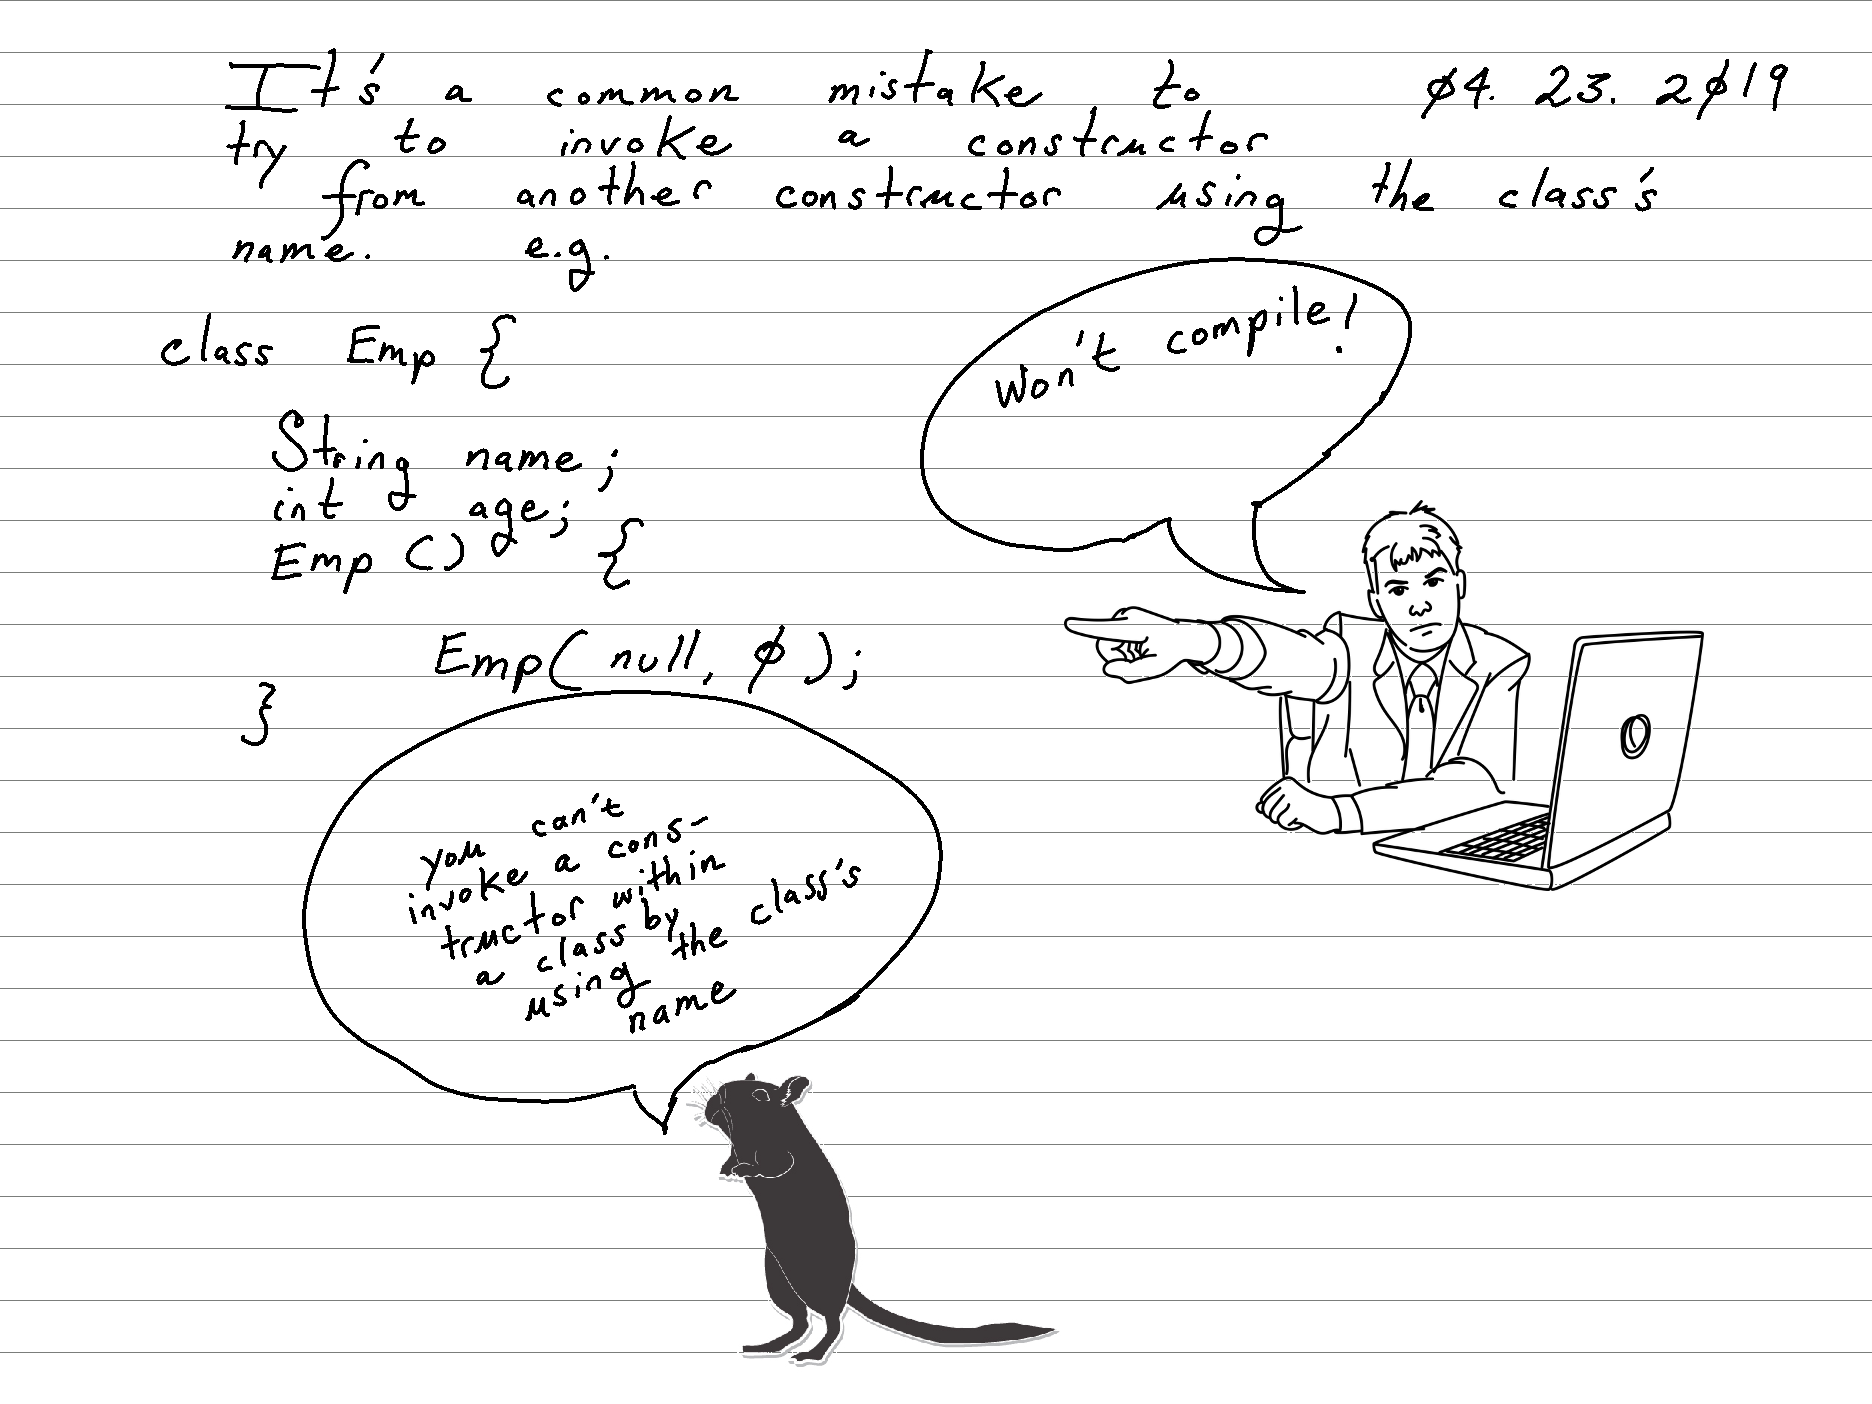 It's a common mistake to
04. 23. 2019
try to invoke a constructor
from another constructor using the class's
name. e.g.
Won't compile!
class Emp {
String name;
int age;
Emp () {
Emp( null, 0 );
}
you can't
invoke a cons-
tructor within
a class by
using the class's
name